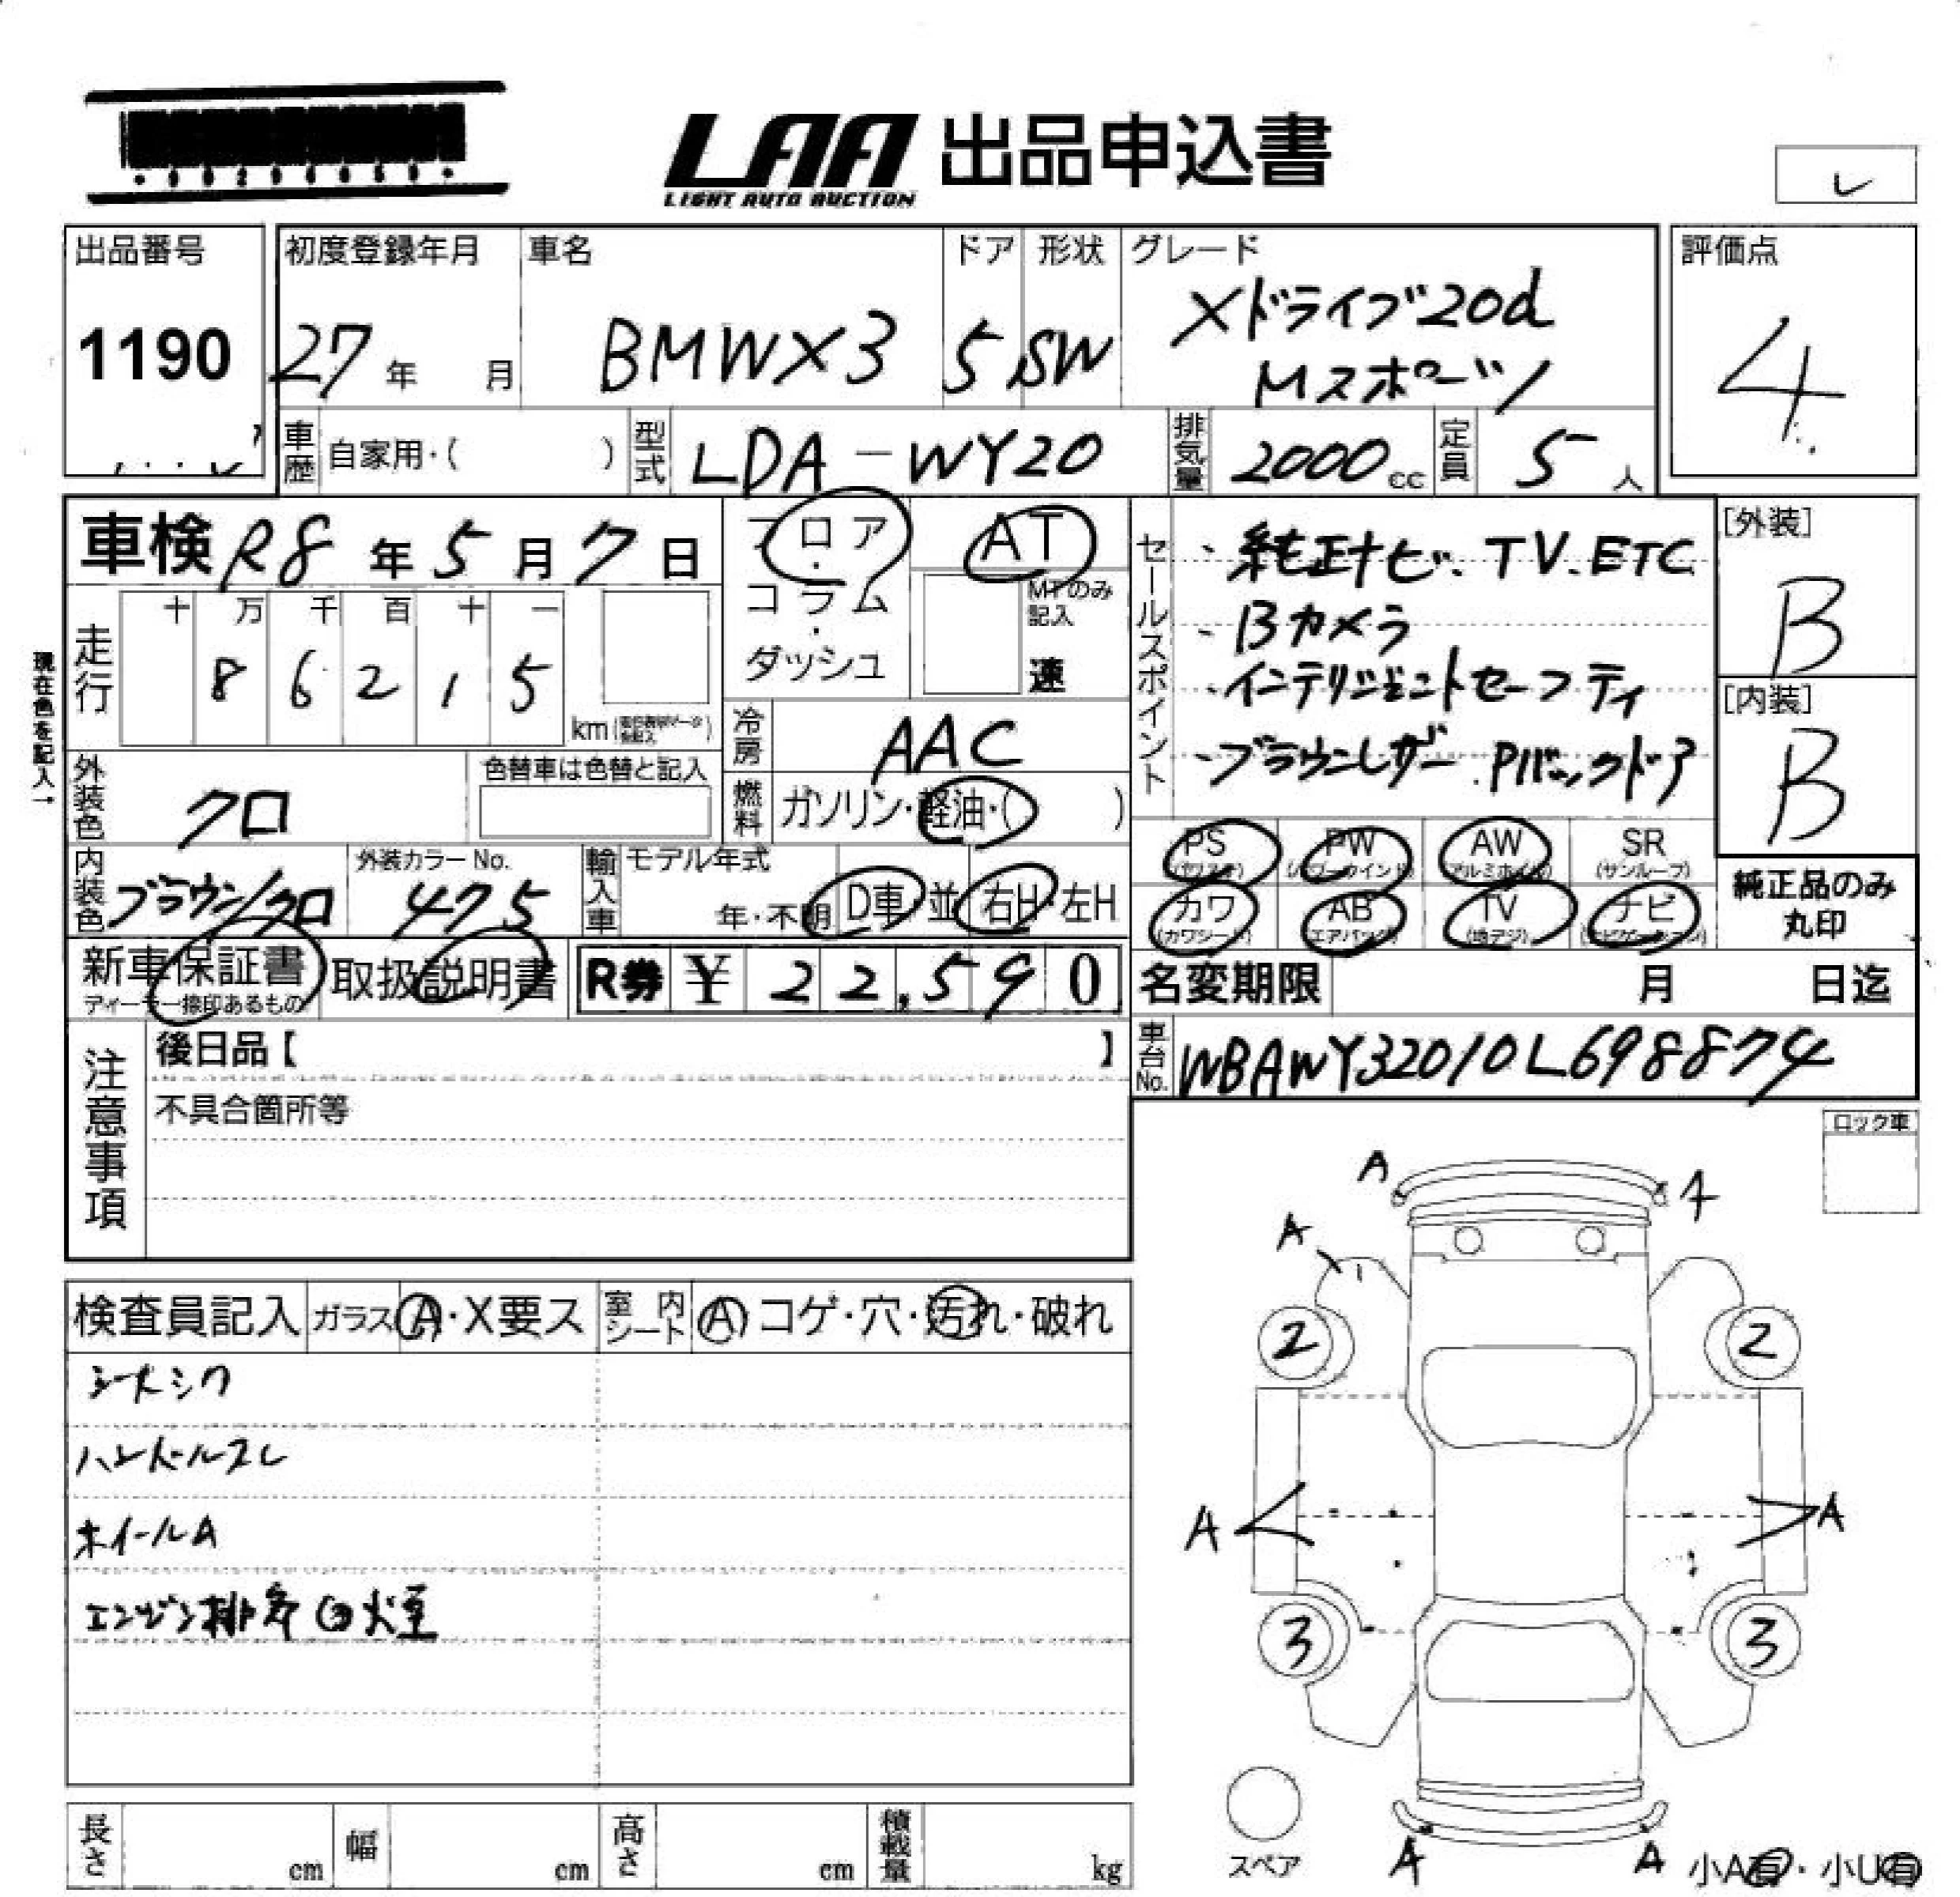 LAA 出品申込書
LIGHT AUTO AUCTION
出品番号
1190
初度登録年月
27年 月
車名
BMWX3
ドア
5
形状
SW
グレード
Xドライブ20d
Mスポーツ
評価点
4
車歴 自家用・( )
型式 LDA-WY20
排気量 2000cc
定員 5人
車検 R8年5月7日
フロア・コラム・ダッシュ
AT
MTのみ記入
速
走行
十 万 千 百 十 一
8 6 2 1 5
km
現在色を記入→
冷房 AAC
燃料 ガソリン・軽油・( )
セールスポイント
・純正ナビ、TV、ETC
・Bカメラ
・インテリジェントセーフティ
・ブラウンレザー、Pバックドア
[外装]
B
[内装]
B
外装色 クロ
色替車は色替と記入
内装色 ブラウン/クロ
外装カラーNo.
475
輸入車 モデル年式
年・不明
D車・並
右H・左H
PS
AW
SR
(パワステ)
(パワーウインド)
(アルミホイル)
(サンルーフ)
PW
カワ
AB
TV
ナビ
(カワシート)
(エアバック)
(地デジ)
(ナビゲーション)
純正品のみ
丸印
新車保証書
ディーラー捺印あるもの
取扱説明書
R券 ¥ 22,590
名変期限 月 日迄
車台No. WBAWY32010L698874
注意事項
後日品【 】
不具合箇所等
ロック車
検査員記入
ガラス A・X要ス
室内シート A コゲ・穴・汚れ・破れ
シートシワ
ハンドルスレ
ホイールA
エンジン排気白煙
A
A
2
2
A
A
3
3
スペア
A
A
小A有・小U有
長さ cm
幅 cm
高さ cm
積載量 kg